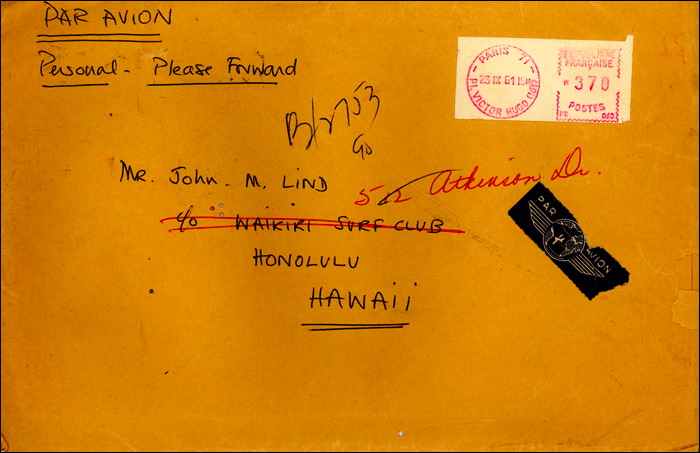 PAR AVION
Personal - Please Forward
PARIS 71
PL. VICTOR HUGO (16e)
RÉPUBLIQUE
FRANÇAISE
370
POSTES
Mr. John - M. LIND
Atkinson Dr.
c/o WAIKIKI SURF CLUB
HONOLULU
HAWAii
PAR AVION